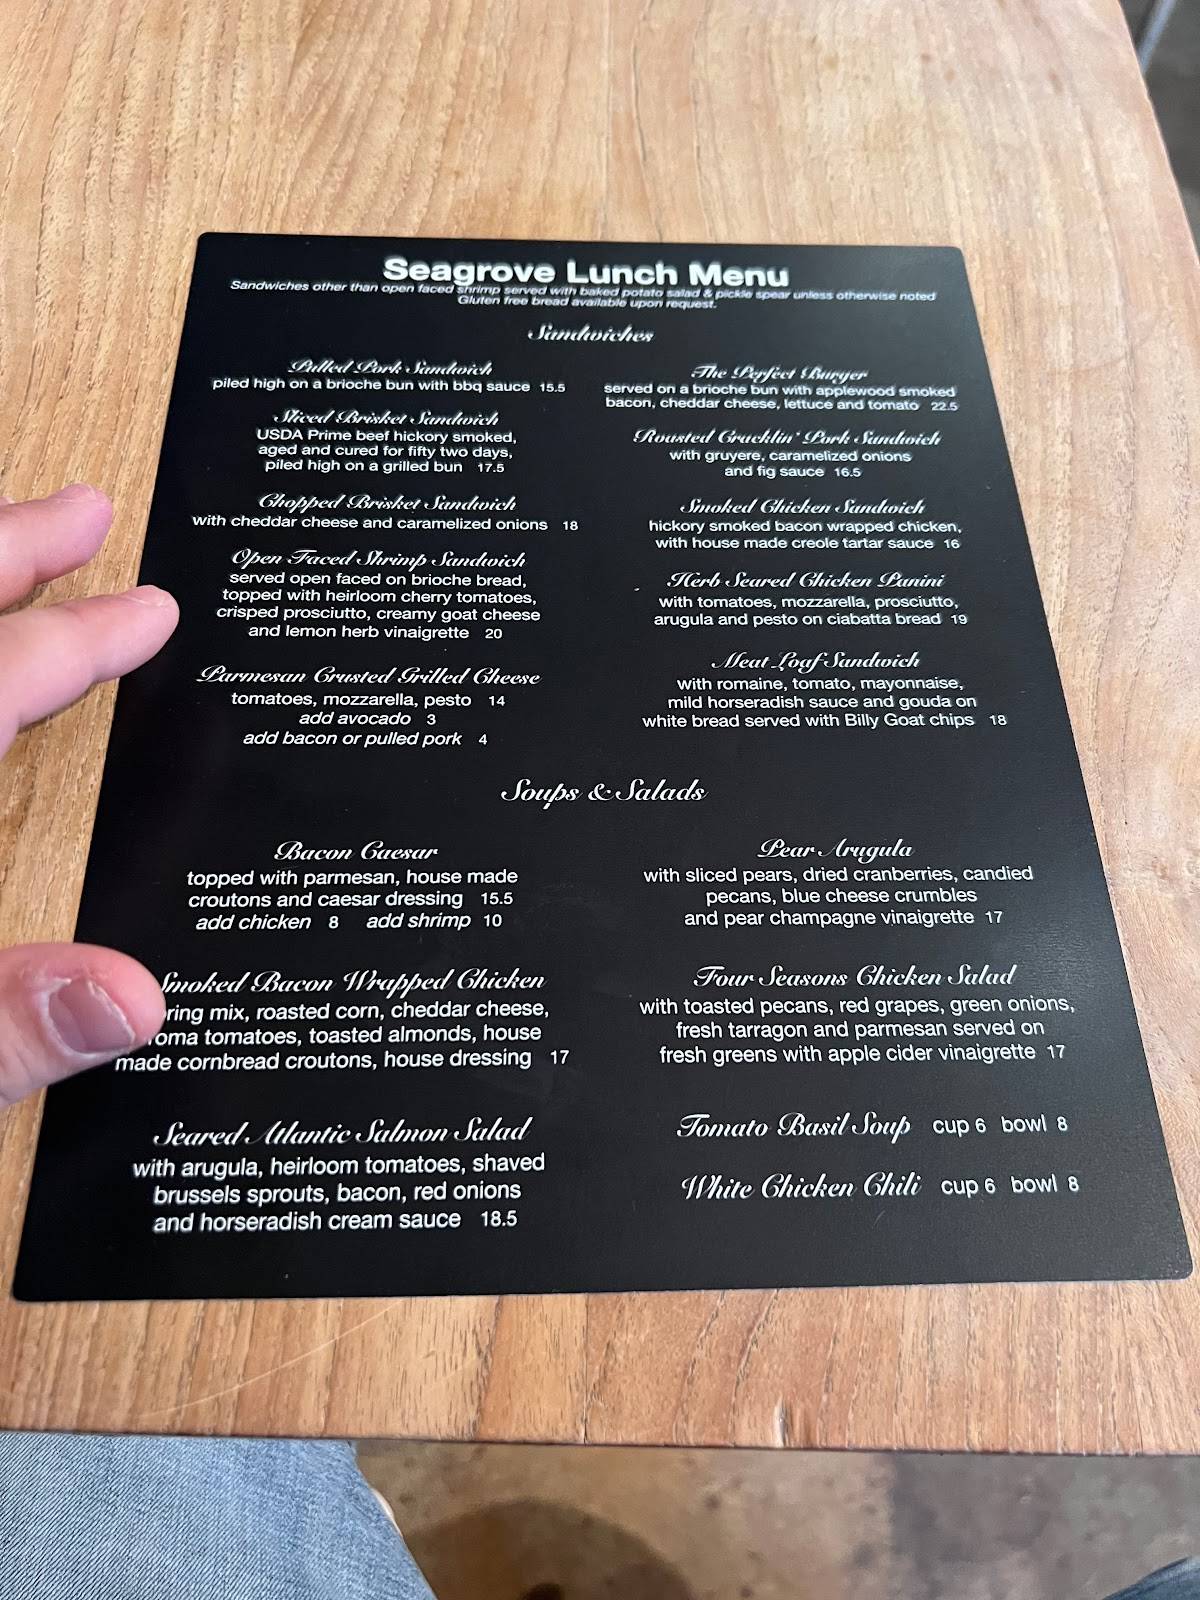 Seagrove Lunch Menu
Sandwiches other than open faced shrimp served with baked potato salad & pickle spear unless otherwise noted
Gluten free bread available upon request.
Sandwiches
Pulled Pork Sandwich
piled high on a brioche bun with bbq sauce 15.5
Sliced Brisket Sandwich
USDA Prime beef hickory smoked,
aged and cured for fifty two days,
piled high on a grilled bun 17.5
Chopped Brisket Sandwich
with cheddar cheese and caramelized onions 18
Open Faced Shrimp Sandwich
served open faced on brioche bread,
topped with heirloom cherry tomatoes,
crisped prosciutto, creamy goat cheese
and lemon herb vinaigrette 20
Parmesan Crusted Grilled Cheese
tomatoes, mozzarella, pesto 14
add avocado 3
add bacon or pulled pork 4
The Perfect Burger
served on a brioche bun with applewood smoked
bacon, cheddar cheese, lettuce and tomato 22.5
Roasted Cracklin' Pork Sandwich
with gruyere, caramelized onions
and fig sauce 16.5
Smoked Chicken Sandwich
hickory smoked bacon wrapped chicken,
with house made creole tartar sauce 16
Herb Seared Chicken Panini
with tomatoes, mozzarella, prosciutto,
arugula and pesto on ciabatta bread 19
Meat Loaf Sandwich
with romaine, tomato, mayonnaise,
mild horseradish sauce and gouda on
white bread served with Billy Goat chips 18
Soups & Salads
Bacon Caesar
topped with parmesan, house made
croutons and caesar dressing 15.5
add chicken 8 add shrimp 10
Smoked Bacon Wrapped Chicken
ring mix, roasted corn, cheddar cheese,
roma tomatoes, toasted almonds, house
made cornbread croutons, house dressing 17
Seared Atlantic Salmon Salad
with arugula, heirloom tomatoes, shaved
brussels sprouts, bacon, red onions
and horseradish cream sauce 18.5
Pear Arugula
with sliced pears, dried cranberries, candied
pecans, blue cheese crumbles
and pear champagne vinaigrette 17
Four Seasons Chicken Salad
with toasted pecans, red grapes, green onions,
fresh tarragon and parmesan served on
fresh greens with apple cider vinaigrette 17
Tomato Basil Soup cup 6 bowl 8
White Chicken Chili cup 6 bowl 8